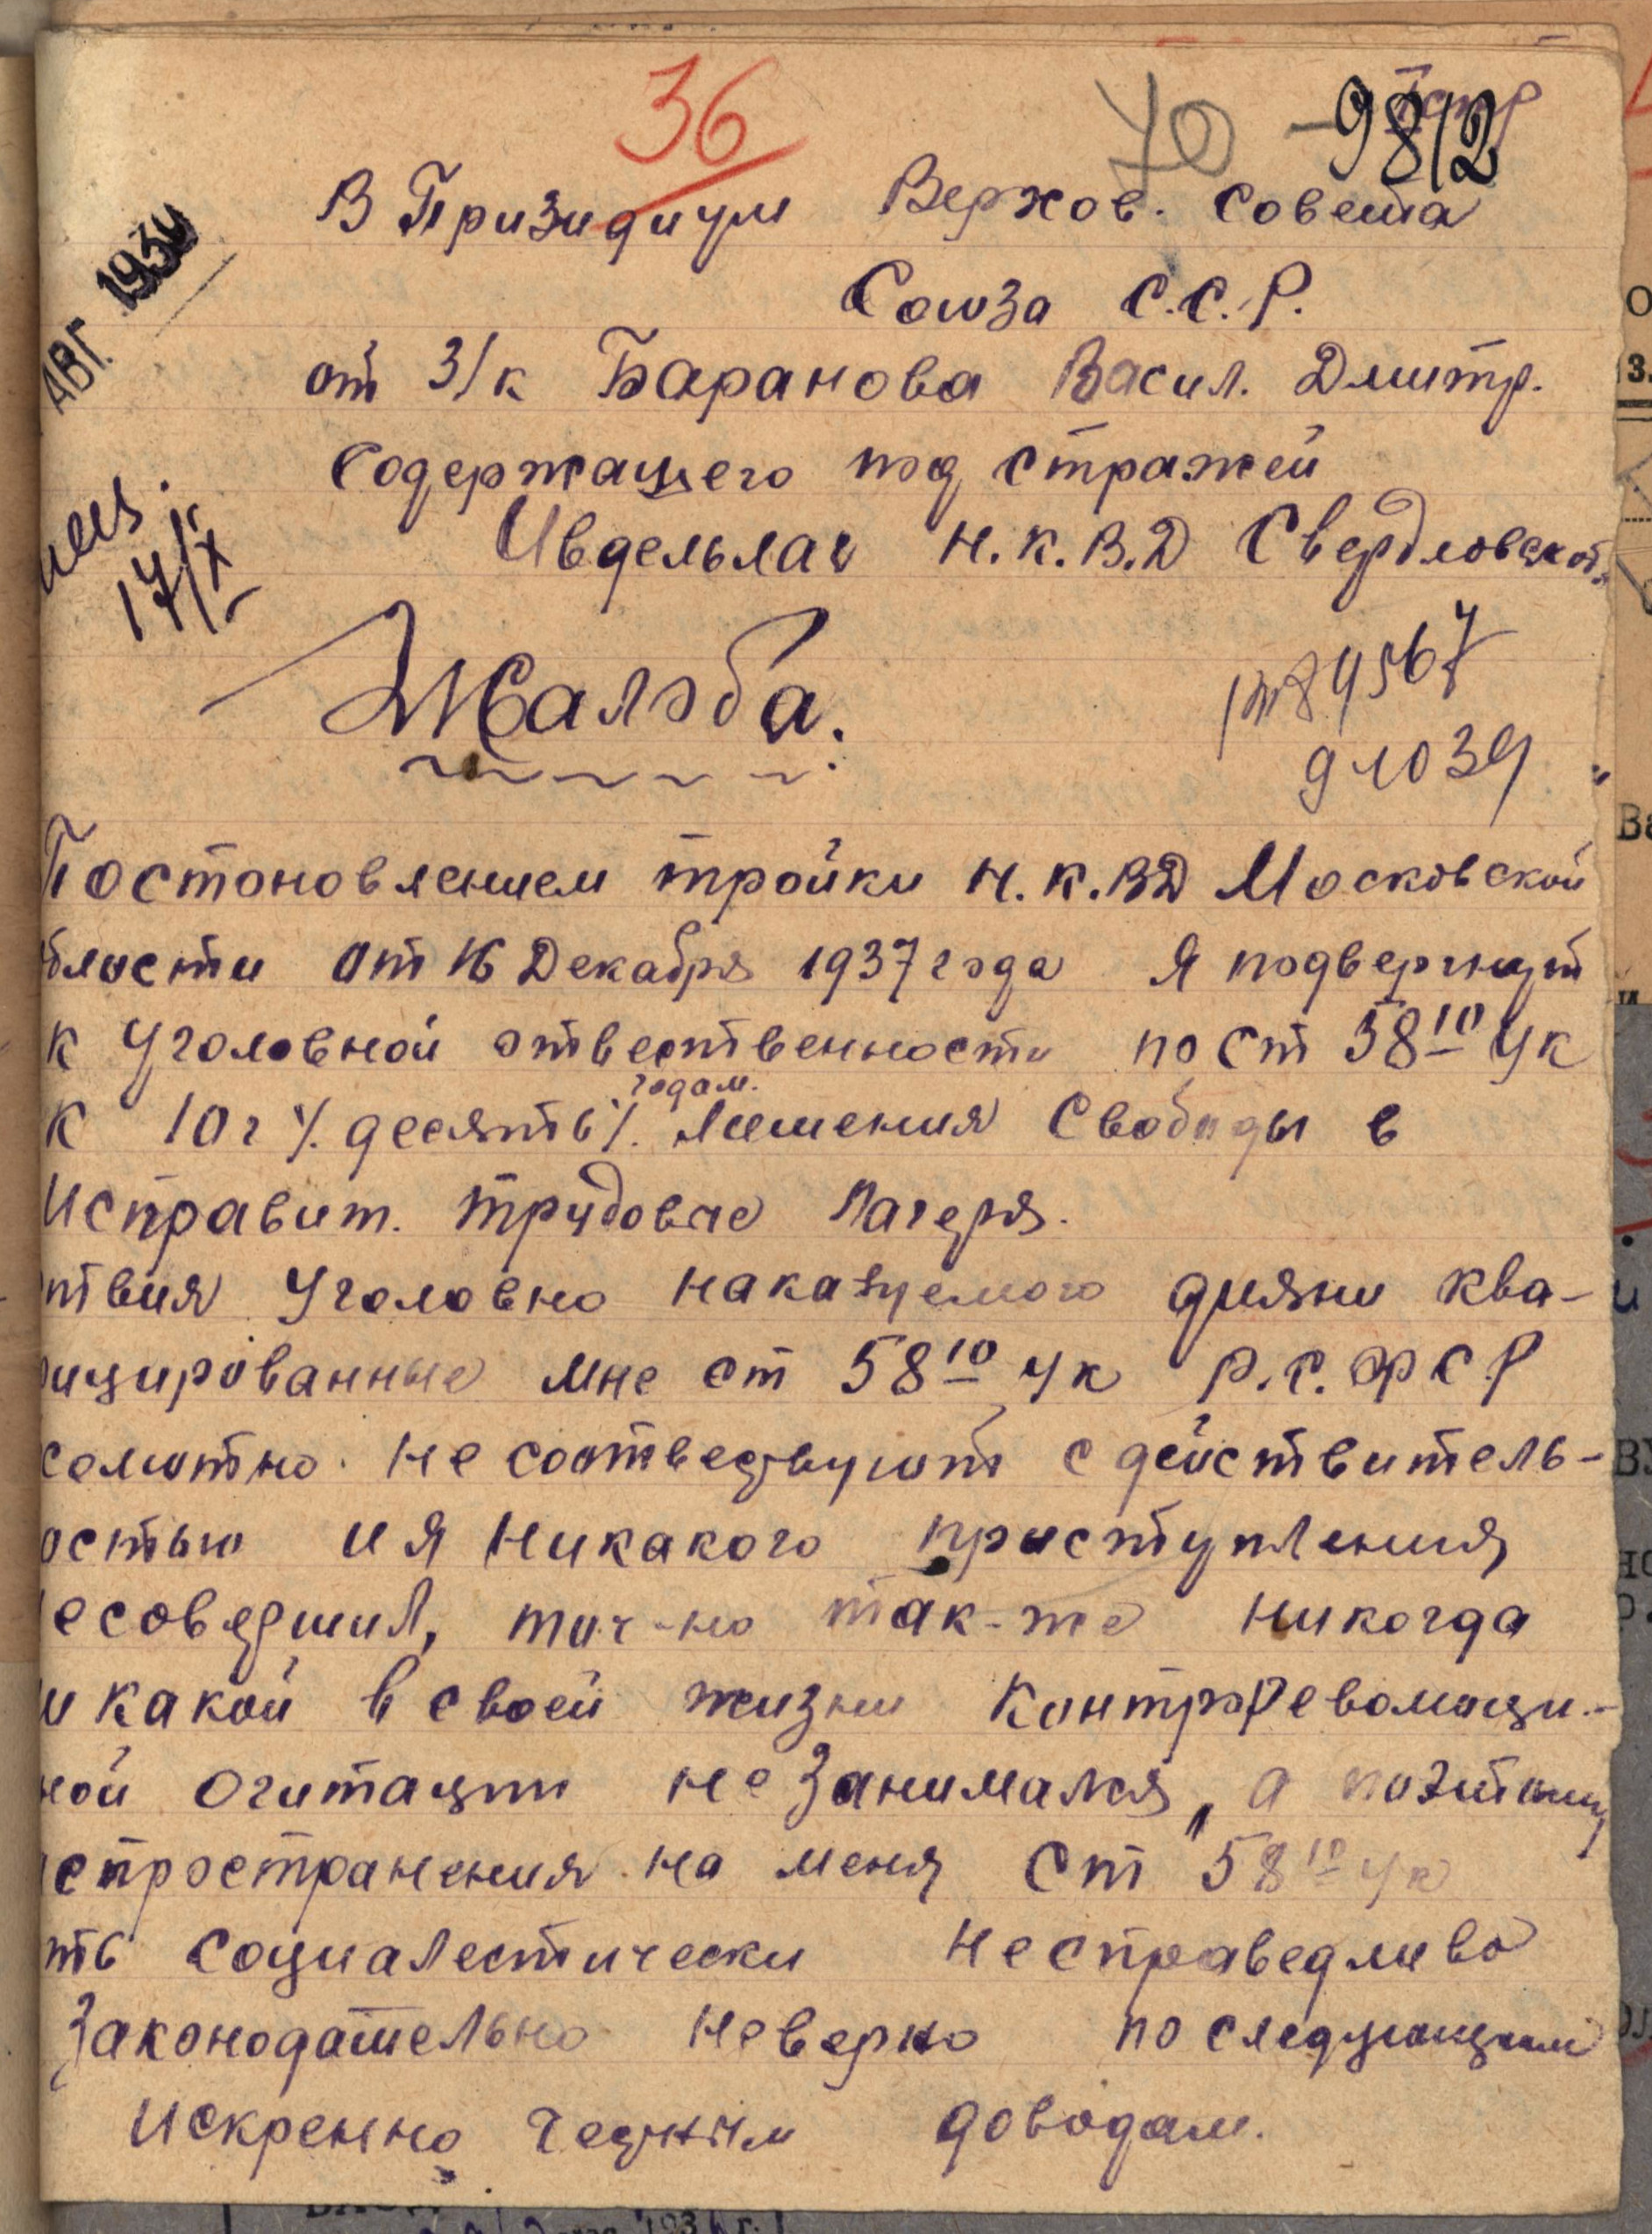 36
70
9812
В Призидиум Верхов. Совета
Союза С.С.Р.
АВГ. 193
от З/к Баранова Васил. Дмитр.
содержащего под стражей
17/X
Ивдельлаг Н.К.В.Д Свердловской
Жалоба.
89567
91039
Постоновлением тройки Н.К.ВД Московской
бласти от 16 Декабря 1937 года я подвергнут
к Уголовной ответственности по ст 58¹⁰ УК
годам.
к 10 г % десять %. Лишения Свободы в
Исправит. трудовые Лагеря.
ствия Уголовно наказуемого дияни ква-
ицированные мне ст 58¹⁰ УК Р.С.ФСР
солютно не соотведзвуют с действитель-
остью и я никакого приступления
есовершил, точ-но так-же никогда
и какой в своей жизни контрреволюци-
ной огитации не занимался, а поэтому
спространения на меня ст 58¹⁰ УК
ть социалестически несправедливо
Законодательно неверно по следующим
искренно доводам.